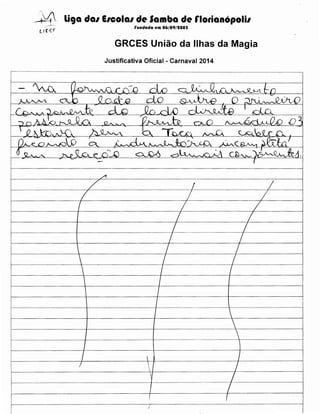 Liga das Escolas de Samba de Florianópolis
Fundada em 06/09/2005
LIESF
GRCES União da Ilhas da Magia
Justificativa Oficial - Carnaval 2014
- Na formação do alinhamento
um ao lado do outro, o primeiro
componente do lado direito da
passarela em frente ao módulo 03
estava sem a Toca na cabeça,
ficando a indumentária incompleta
em relação aos demais componentes.